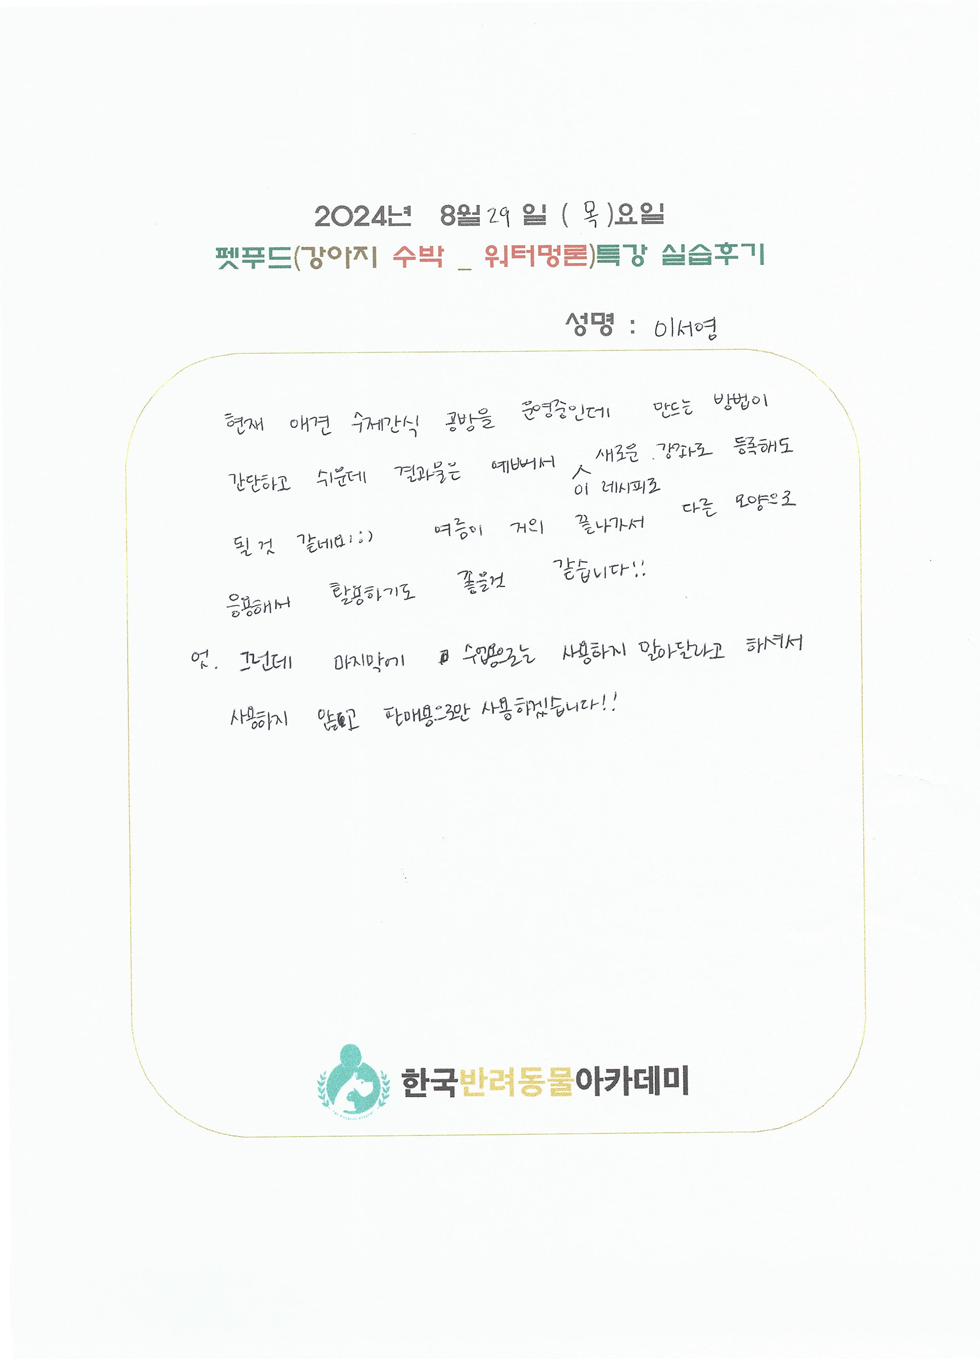 2024년 8월 29 일 ( 목 )요일
펫푸드(강아지 수박 _ 워터멍론)특강 실습후기
성명 : 이서영
현재 애견 수제간식 공방을 운영중인데 만드는 방법이
간단하고 쉬운데 결과물은 예뻐서 새로운 강좌로 등록해도
이 레시피로
될 것 같네요!:) 여름이 거의 끝나가서 다른 모양으로
응용해서 활용하기도 좋을것 같습니다!!
엇. 그런데 마지막에 수업용으로는 사용하지 말아달라고 하셔서
사용하지 않고 판매용으로만 사용하겠습니다!!
한국반려동물아카데미